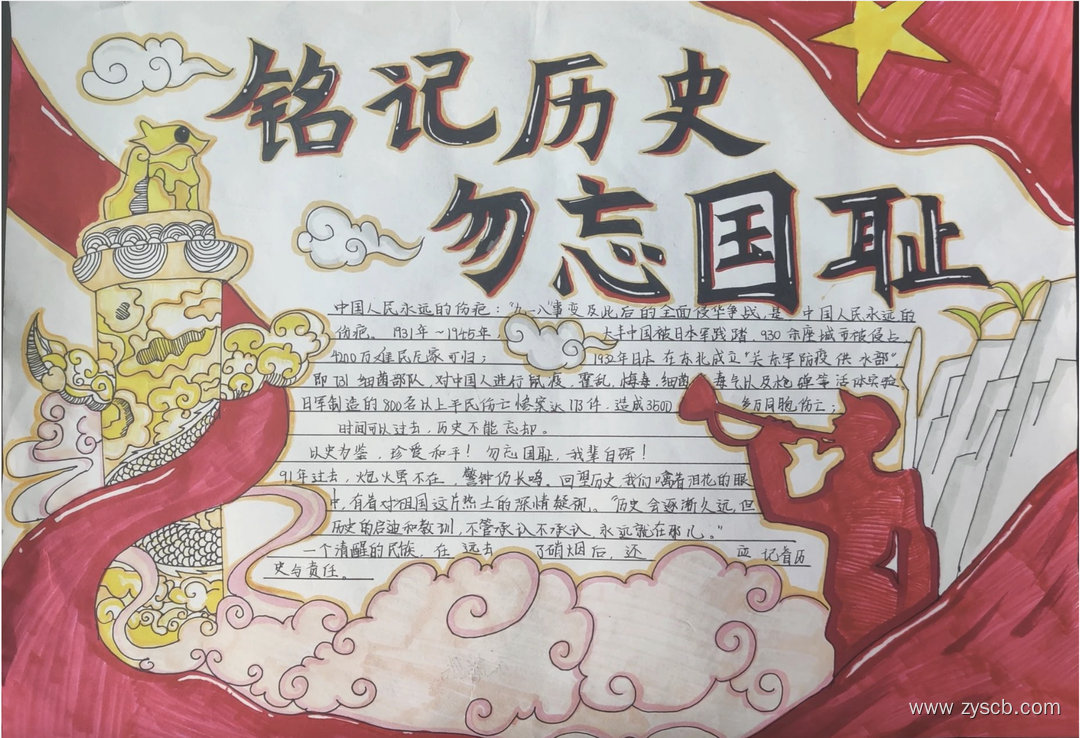 铭记历史
勿忘国耻
中国人民永远的伤疤："九一八"事变及此后的全面侵华争战,是 中国人民永远的
伤疤。1931年~1945年, 大半中国被日本军践踏,930余座城市被侵占
4200万难民无家可归; 1932年日本 在东北成立"关东军防疫供水部",
即731细菌部队,对中国人进行鼠疫,霍乱,梅毒,细菌 毒气以及枪弹等活体实验
日军制造的800名以上平民伤亡惨案达173件,造成3500 多万同胞伤亡;
时间可以过去,历史不能忘却。
以史为鉴,珍爱和平!勿忘国耻,我辈自强!
91年过去,炮火虽不在,警钟仍长鸣,回望历史,我们噙着泪花的眼
中,有着对祖国这片热土的深情凝视。"历史会逐渐久远,但
历史的启迪和教训,不管承认不承认 永远就在那儿。"
一个清醒的民族,在 远去 了硝烟后,还 应 记着历
史与责任。
www.zyscb.com